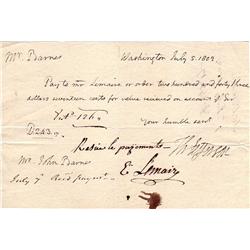 Mr. Barnes
Washington July 5. 1802
Pay to mr Lemaire or order two hundred and forty three
dollars seventeen cents for value received on account of Sir
Your humble servt
D243.
Th Jefferson
Mr. John Barnes
E Lemaire
July 7